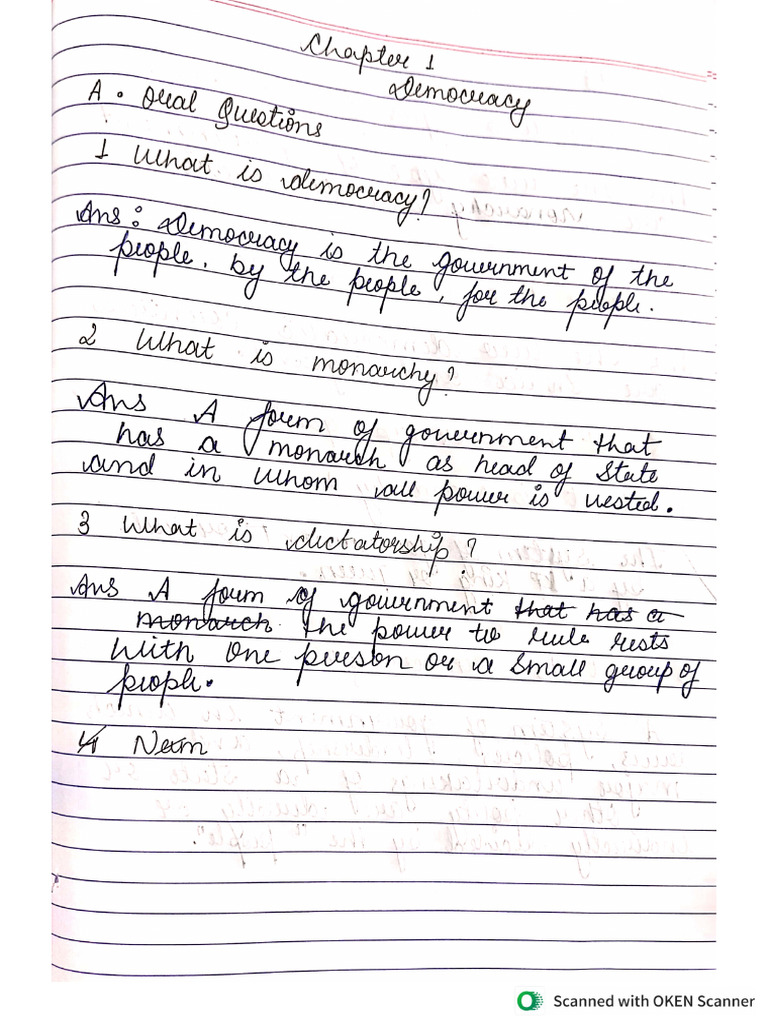 Chapter 1
Democracy
A. Oral Questions
1 What is democracy?
Ans : Democracy is the government of the
people. by the people, for the people.
2 What is monarchy?
Ans A form of government that
has a monarch as head of State
and in whom all power is vested.
3 What is dictatorship?
Ans A form of government that has a
monarch. the power to rule rests
with one person or a small group of
people.
4
Scanned with OKEN Scanner